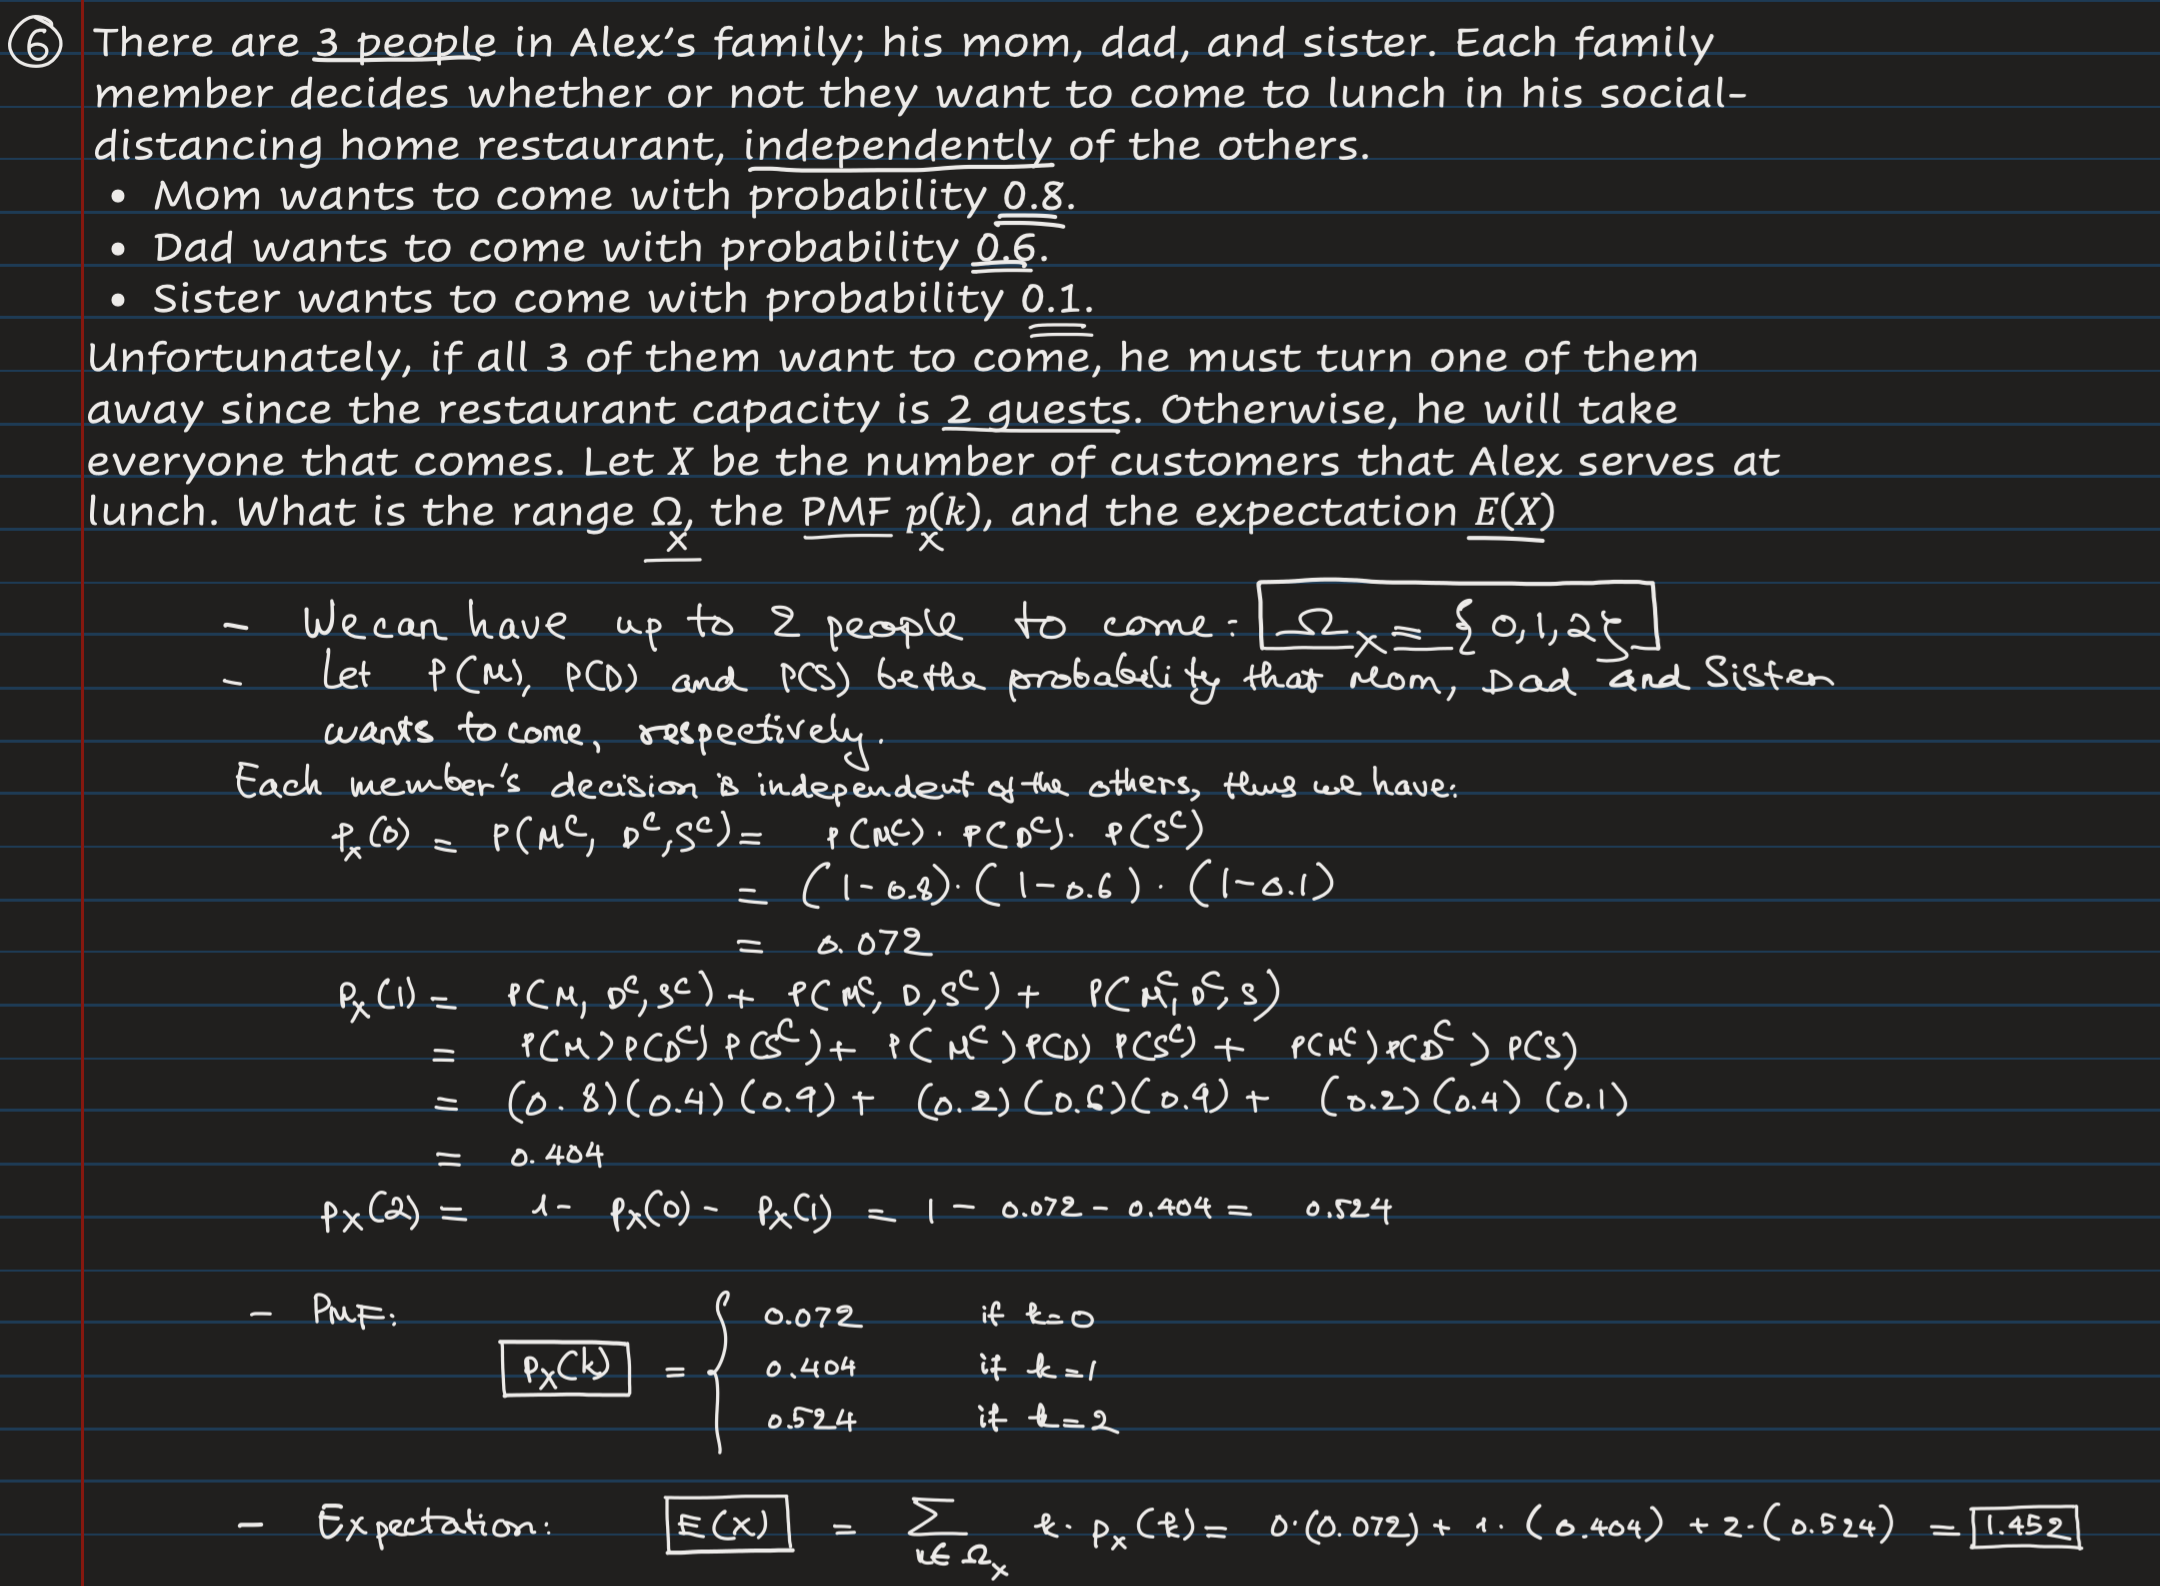 6 There are 3 people in Alex's family; his mom, dad, and sister. Each family
member decides whether or not they want to come to lunch in his social-
distancing home restaurant, independently of the others.
• Mom wants to come with probability 0.8.
• Dad wants to come with probability 0.6.
• Sister wants to come with probability 0.1.
Unfortunately, if all 3 of them want to come, he must turn one of them
away since the restaurant capacity is 2 guests. Otherwise, he will take
everyone that comes. Let X be the number of customers that Alex serves at
lunch. What is the range Ω_X, the PMF p_X(k), and the expectation E(X)
- We can have up to 2 people to come: Ω_X = {0,1,2}
- Let P(M), P(D) and P(S) be the probability that Mom, Dad and Sister
wants to come, respectively.
Each member's decision is independent of the others, thus we have:
P_X(0) = P(M^C, D^C, S^C) = P(M^C) · P(D^C) · P(S^C)
= (1-0.8) · (1-0.6) · (1-0.1)
= 0.072
P_X(1) = P(M, D^C, S^C) + P(M^C, D, S^C) + P(M^C, D^C, S)
= P(M) P(D^C) P(S^C) + P(M^C) P(D) P(S^C) + P(M^C) P(D^C) P(S)
= (0.8)(0.4)(0.9) + (0.2)(0.6)(0.9) + (0.2)(0.4)(0.1)
= 0.404
P_X(2) = 1 - P_X(0) - P_X(1) = 1 - 0.072 - 0.404 = 0.524
- PMF:
0.072 if k=0
P_X(k) = { 0.404 if k=1
0.524 if k=2
- Expectation: E(X) = Σ_{k∈Ω_X} k · P_X(k) = 0·(0.072) + 1·(0.404) + 2·(0.524) = 1.452